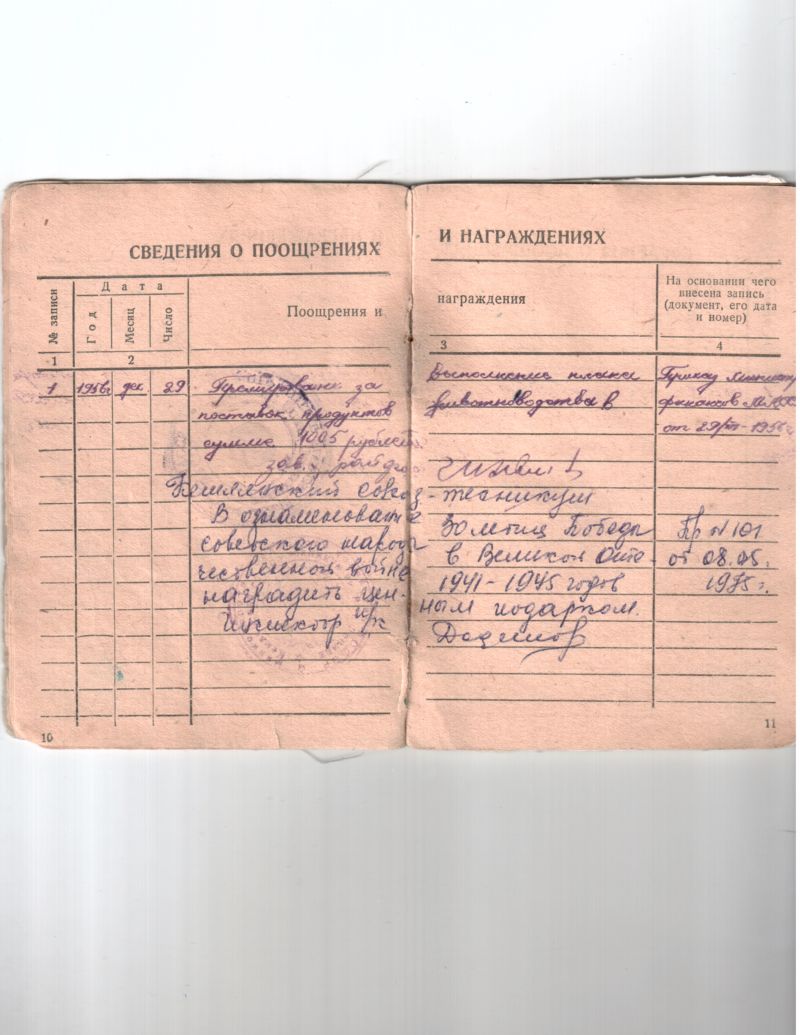 СВЕДЕНИЯ О ПООЩРЕНИЯХ И НАГРАЖДЕНИЯХ
№ записи
Дата
Год
Месяц
Число
Поощрения и награждения
На основании чего внесена запись (документ, его дата и номер)
1
2
3
4
1 1956 дек. 29 Премирован за выполнение плана Приказ
поставок продуктов животноводства в финансов
сумме 1005 рублей от 1956
зав.
техникум
В ознаменование 30 летия Победы Пр № 101
советского народа в Великой Оте- от 08.05.
чественной войне 1941-1945 годов 1975 г.
наградить цен- ным подарком.
Инспектор
10
11